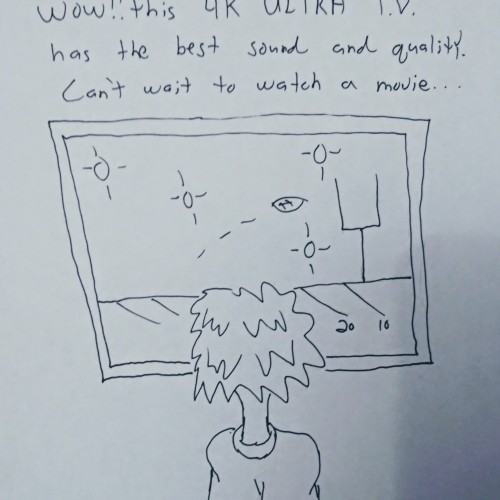 WOW!! this 4K ULTRA T.V.
has the best sound and quality.
Can't wait to watch a movie...
20 10